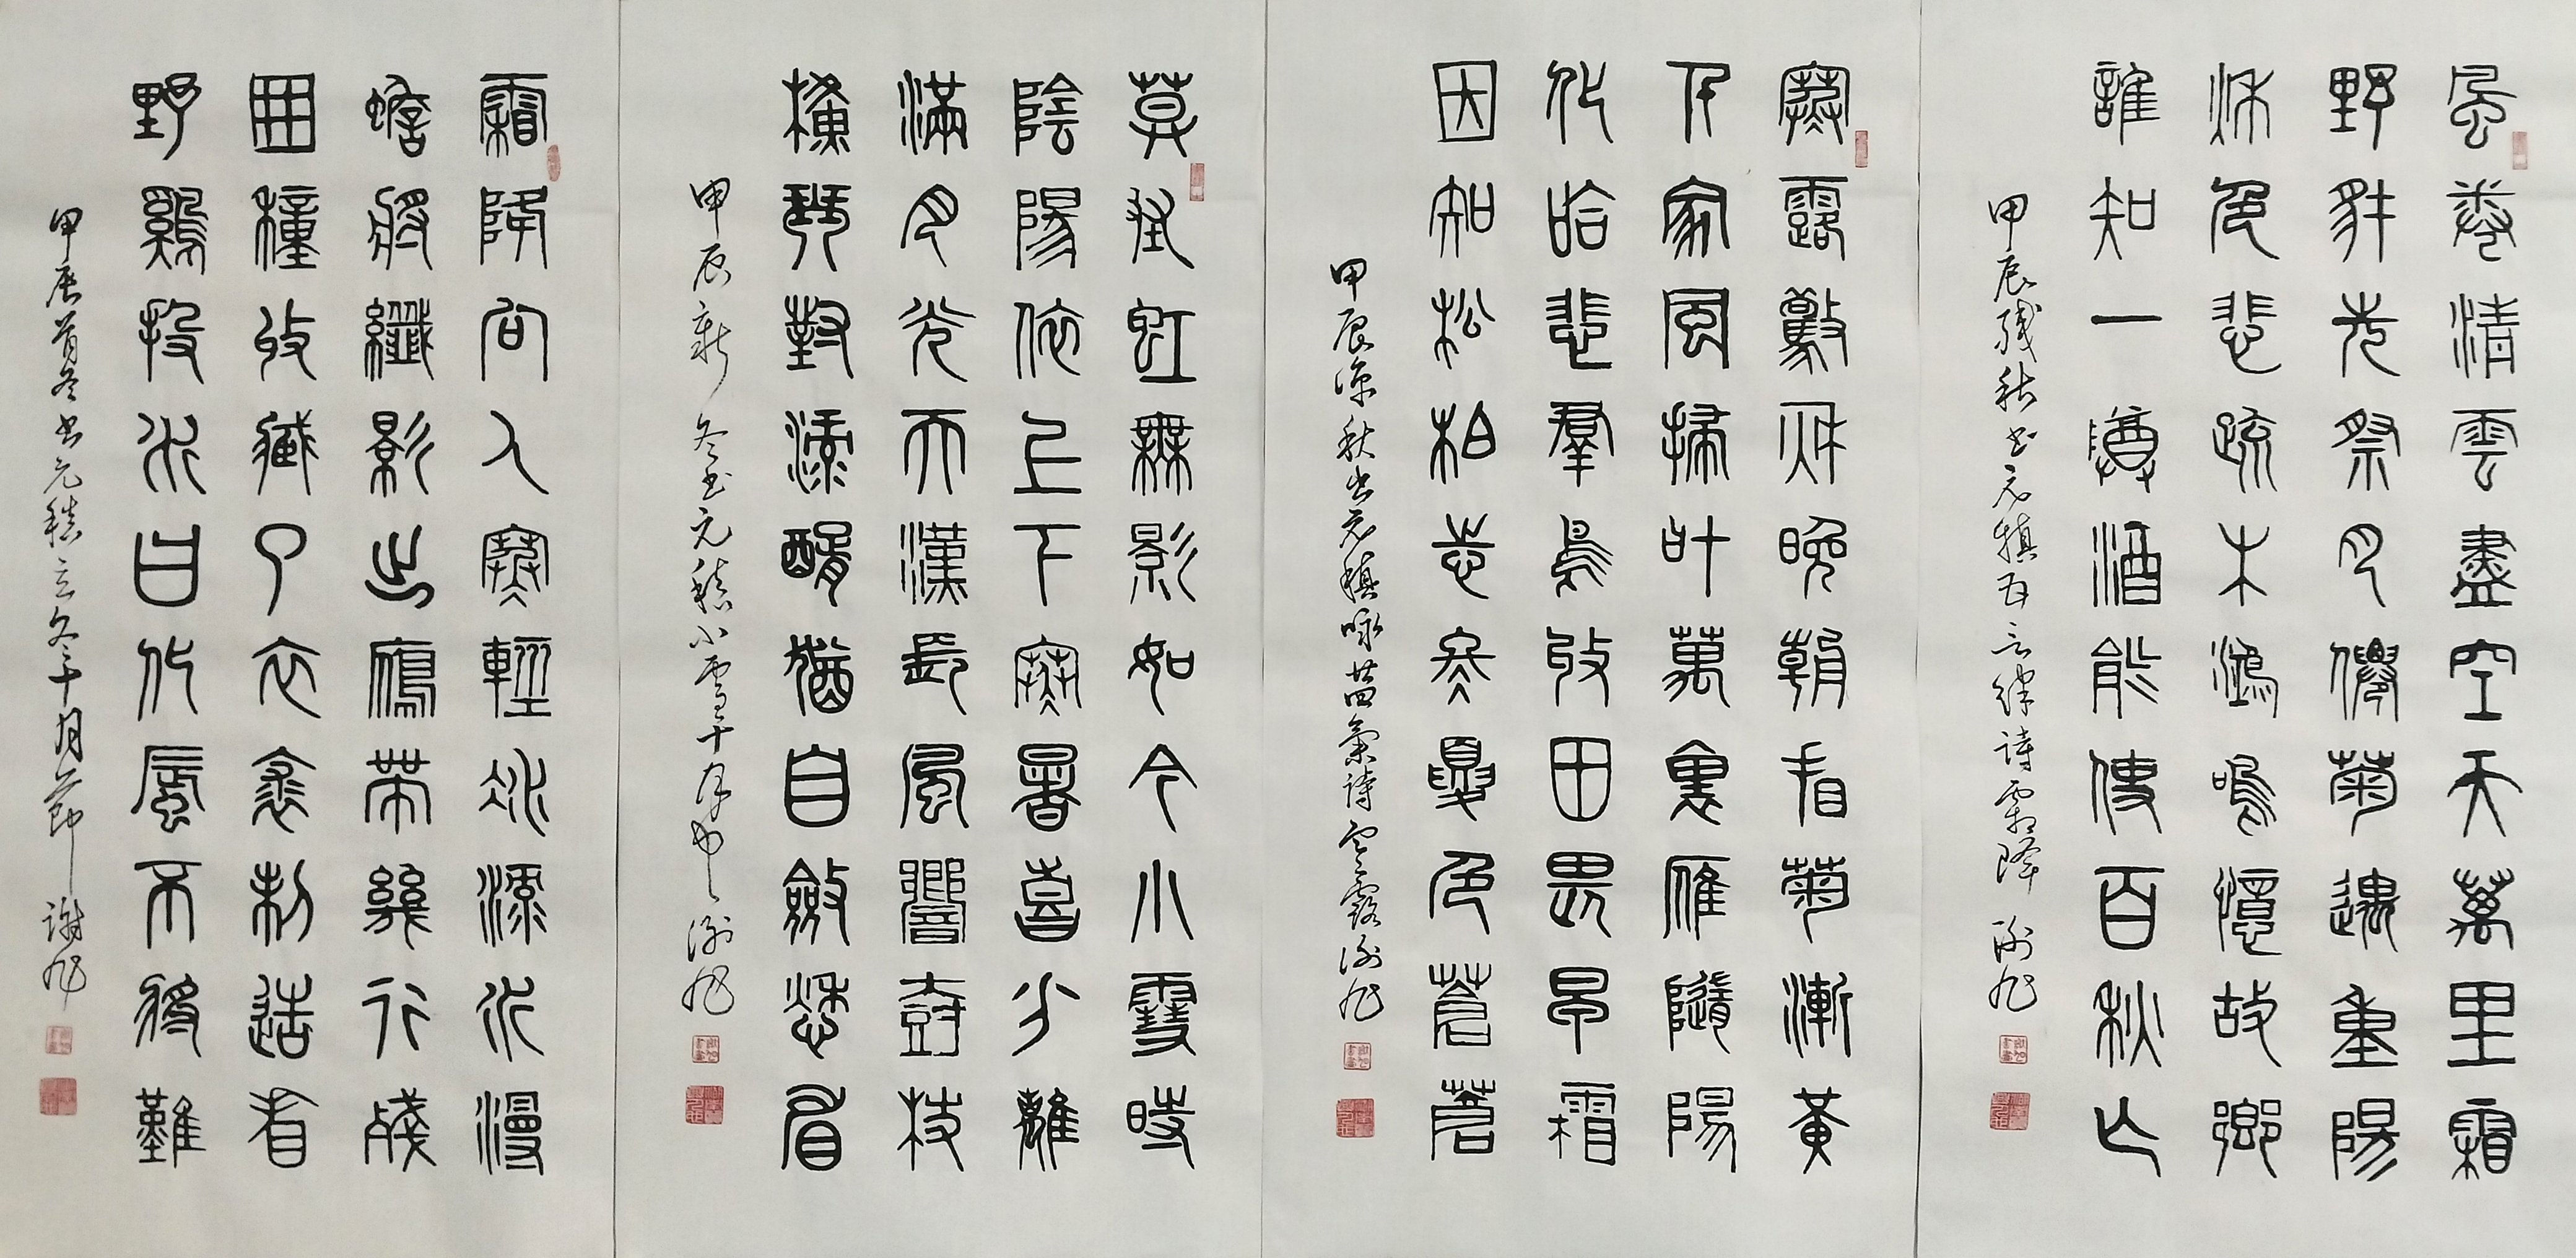 風卷清雲盡空天萬里霜
野豺先祭月僊菊遇重陽
秋色悲疏木鴻鳴憶故鄉
誰知一罇酒能使百秋亡
甲辰残秋书元稹五言律诗霜降 谢旭
寒露驚秋晚朝看菊漸黃
千家風掃葉萬里雁隨陽
化蛤悲羣鳥收田畏早霜
因知松柏志冬夏色蒼蒼
甲辰凉秋书元稹咏廿四气诗寒露谢旭
莫怪虹無影如今小雪時
陰陽依上下寒暑喜分離
滿月光天漢長風響樹枝
橫琴對淥醑猶自斂愁眉
甲辰新冬书元稹小雪十月中 谢旭
霜降向人寒輕冰淥水漫
蟾將纖影出鴈帶幾行殘
田種收藏了衣裘制造看
野鷄投水日化蜃不將難
甲辰首冬书元稹立冬十月节 謝旭